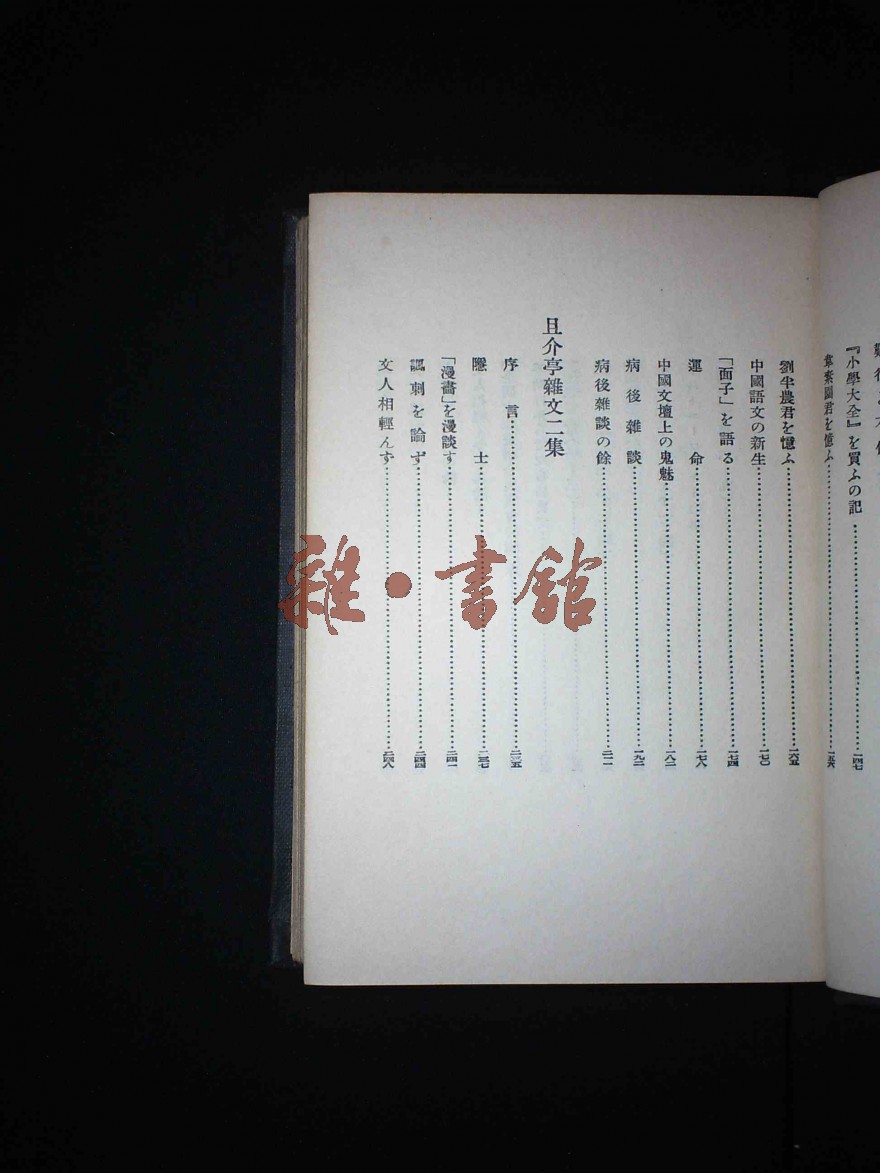 『小學大全』を買ふの記……一四七
韋素園君を憶ふ……一五六
劉半農君を憶ふ……一六五
中國語文の新生……一七〇
「面子」を語る……一七四
運命……一七八
中國文壇上の鬼魅……一八二
病後雜談……一九二
病後雜談の餘……二一一
且介亭雜文二集
序言……二三五
隱士……二三七
「漫畵」を漫談す……二四一
諷刺を論ず……二四四
文人相輕んず……二四八
雜・書館